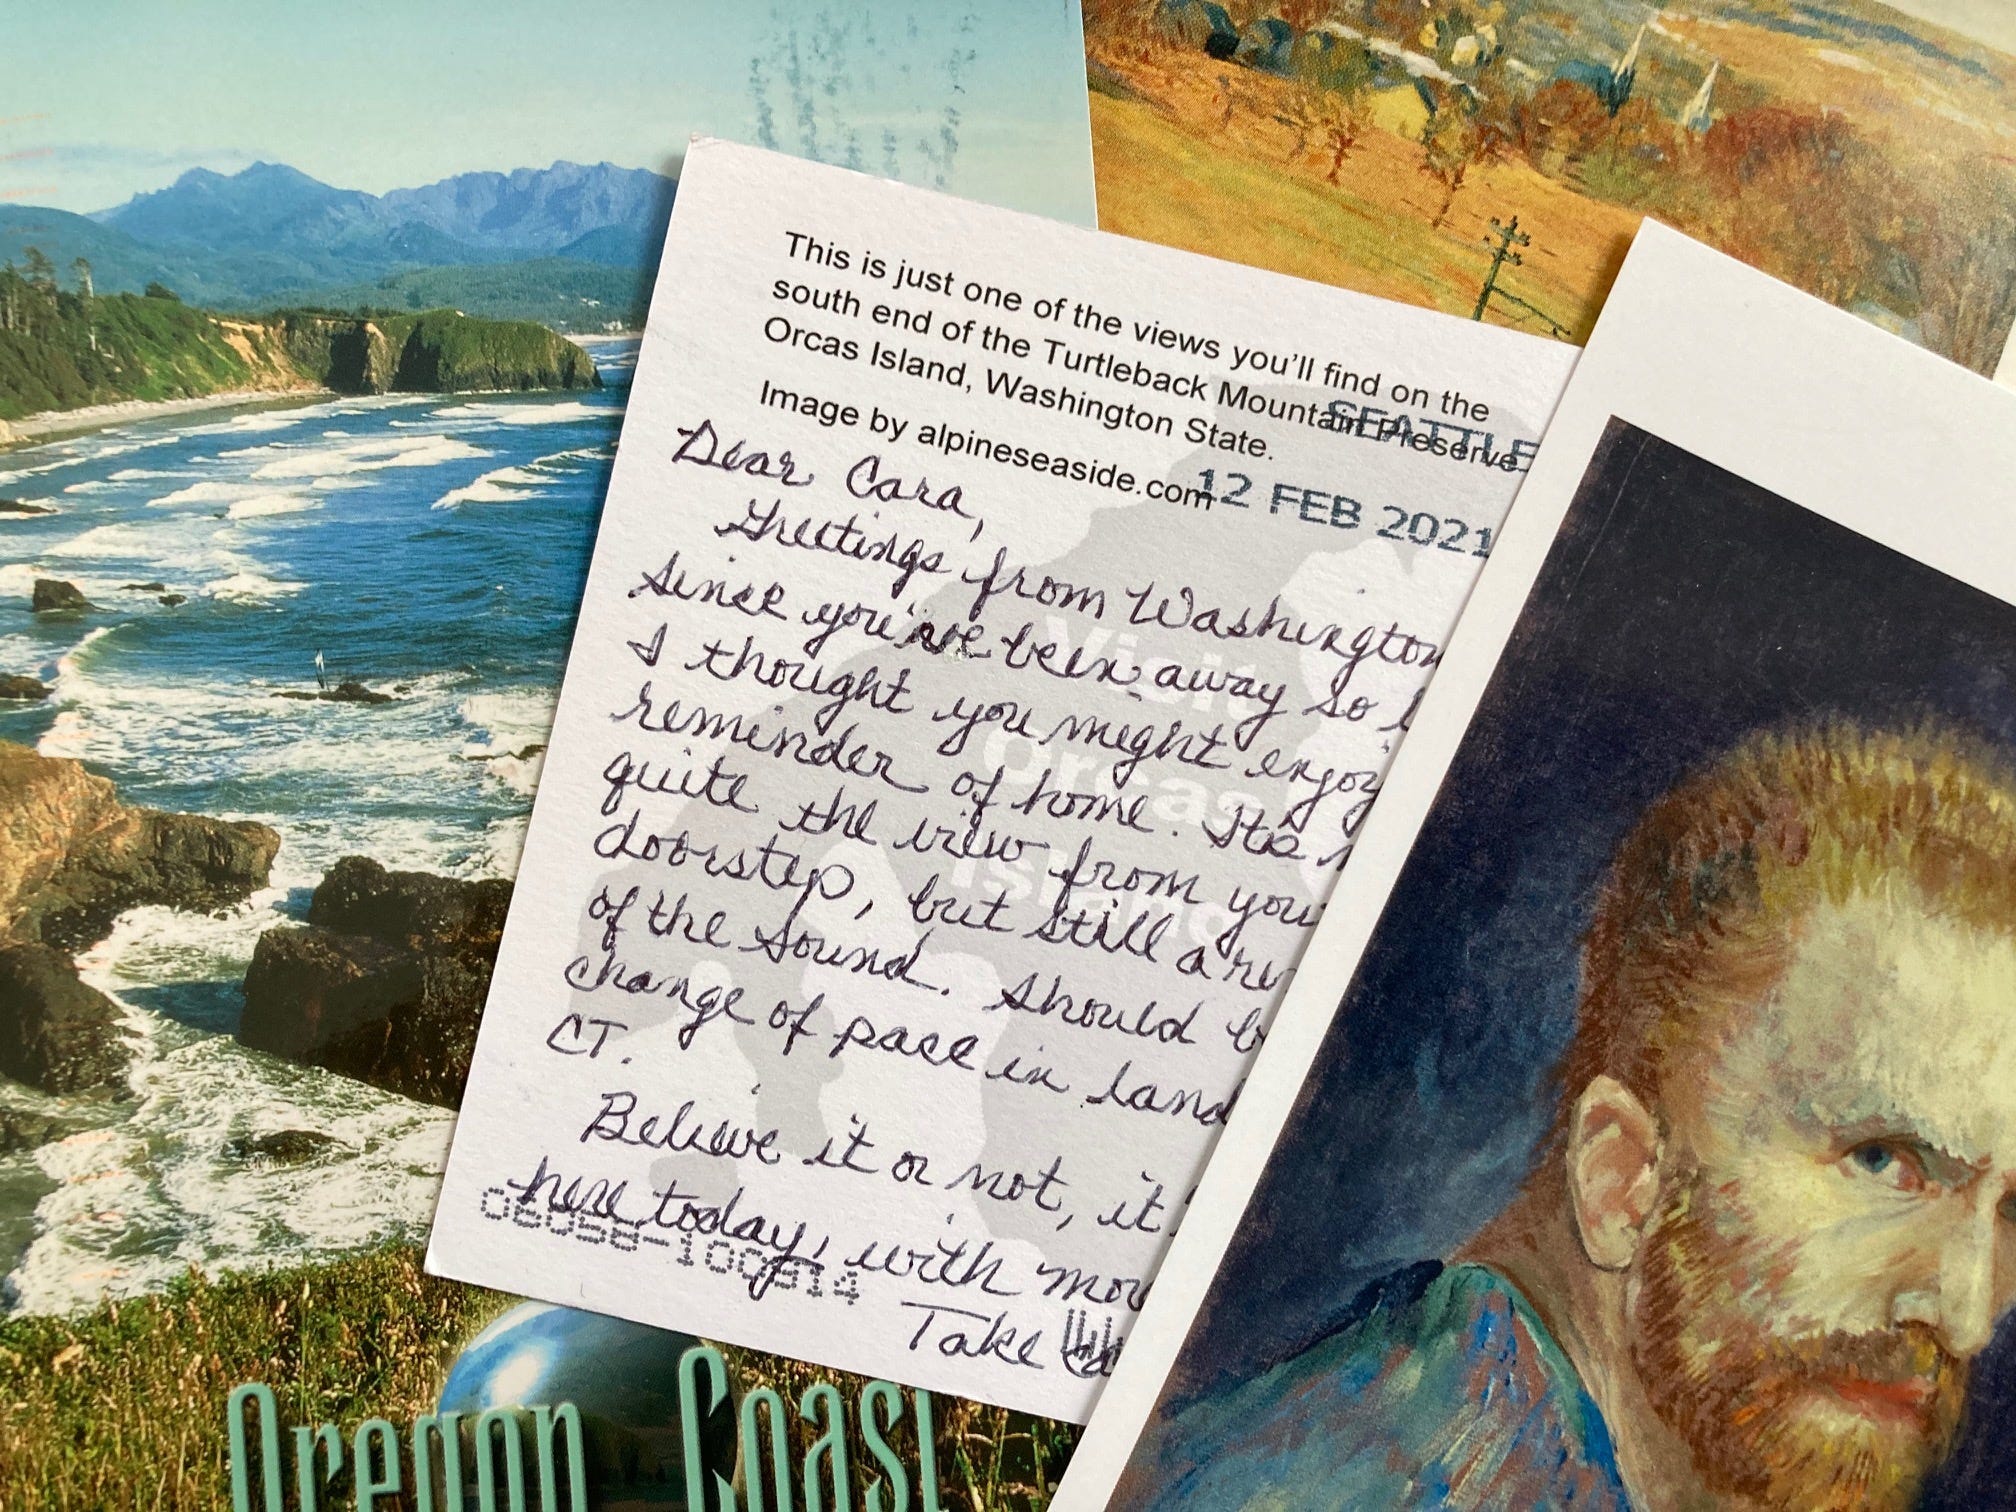 This is just one of the views you'll find on the
south end of the Turtleback Mountain Preserve
Orcas Island, Washington State.
Image by alpineseaside.com
SEATTLE
12 FEB 2021
Dear Cara,
Greetings from Washington
since you've been away so
I thought you might enjoy
reminder of home. It's
quite the view from
doorstep, but still a
of the Sound. Should
change of pace in land
CT.
Believe it or not, it
here today, with
Take
Visit
Orcas
Island
Oregon Coast